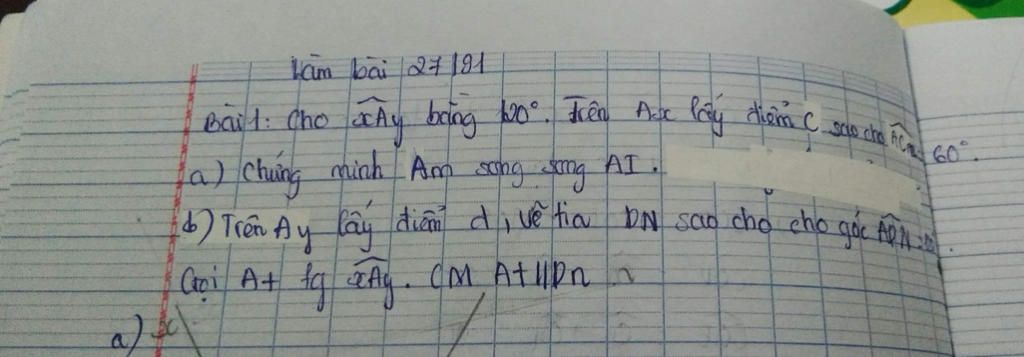 Làm bài 27/91
Bài 1: Cho xAy bằng 120°. Trên Ax lấy điểm C sao cho ACn = 60°.
a) Chứng minh Am song song AI.
b) Trên Ay lấy điểm d, vẽ tia DN sao cho cho góc ADN
Gọi At tg xAy. CM At//Dn
a) x